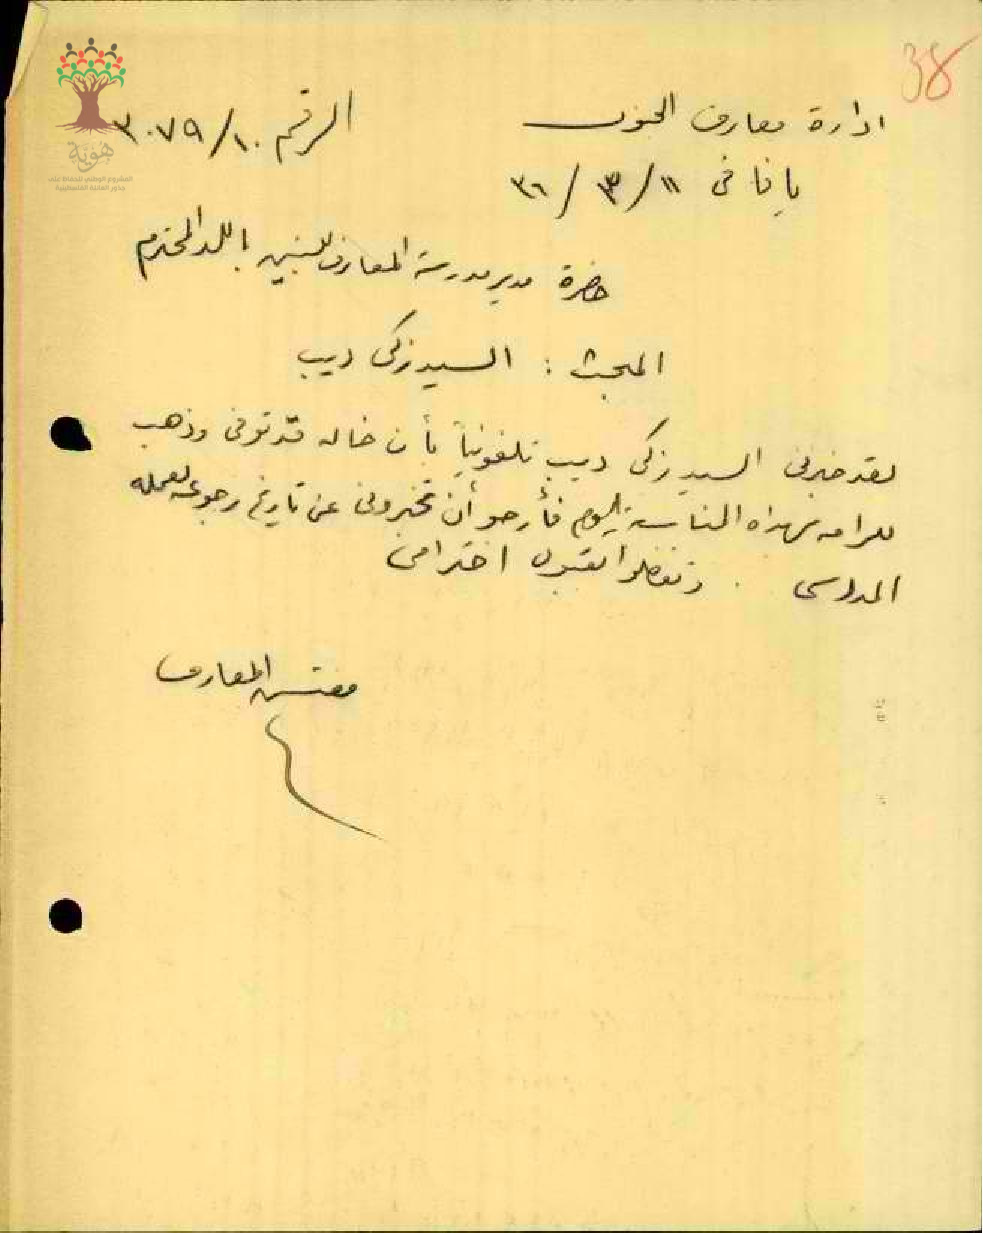 38
ادارة معارف الجنوب
الرقم ١٠/٣٠٧٩
يافا في ١١/٣/٣٦
حضرة مدير مدرسة المعارف للبنين باللد المحترم
المبحث : السيد زكي ديب
لقد خبرني السيد زكي ديب تلفونياً بأن خاله قد توفى وذهب
للرامه بهذه المناسبة اليوم فأرجو أن تخبروني عن تاريخ رجوعه لعمله
المدرسي . وتفضلوا بقبول احترامي
مفتش المعارف
هوية
المشروع الوطني للحفاظ على
جذور العائلة الفلسطينية